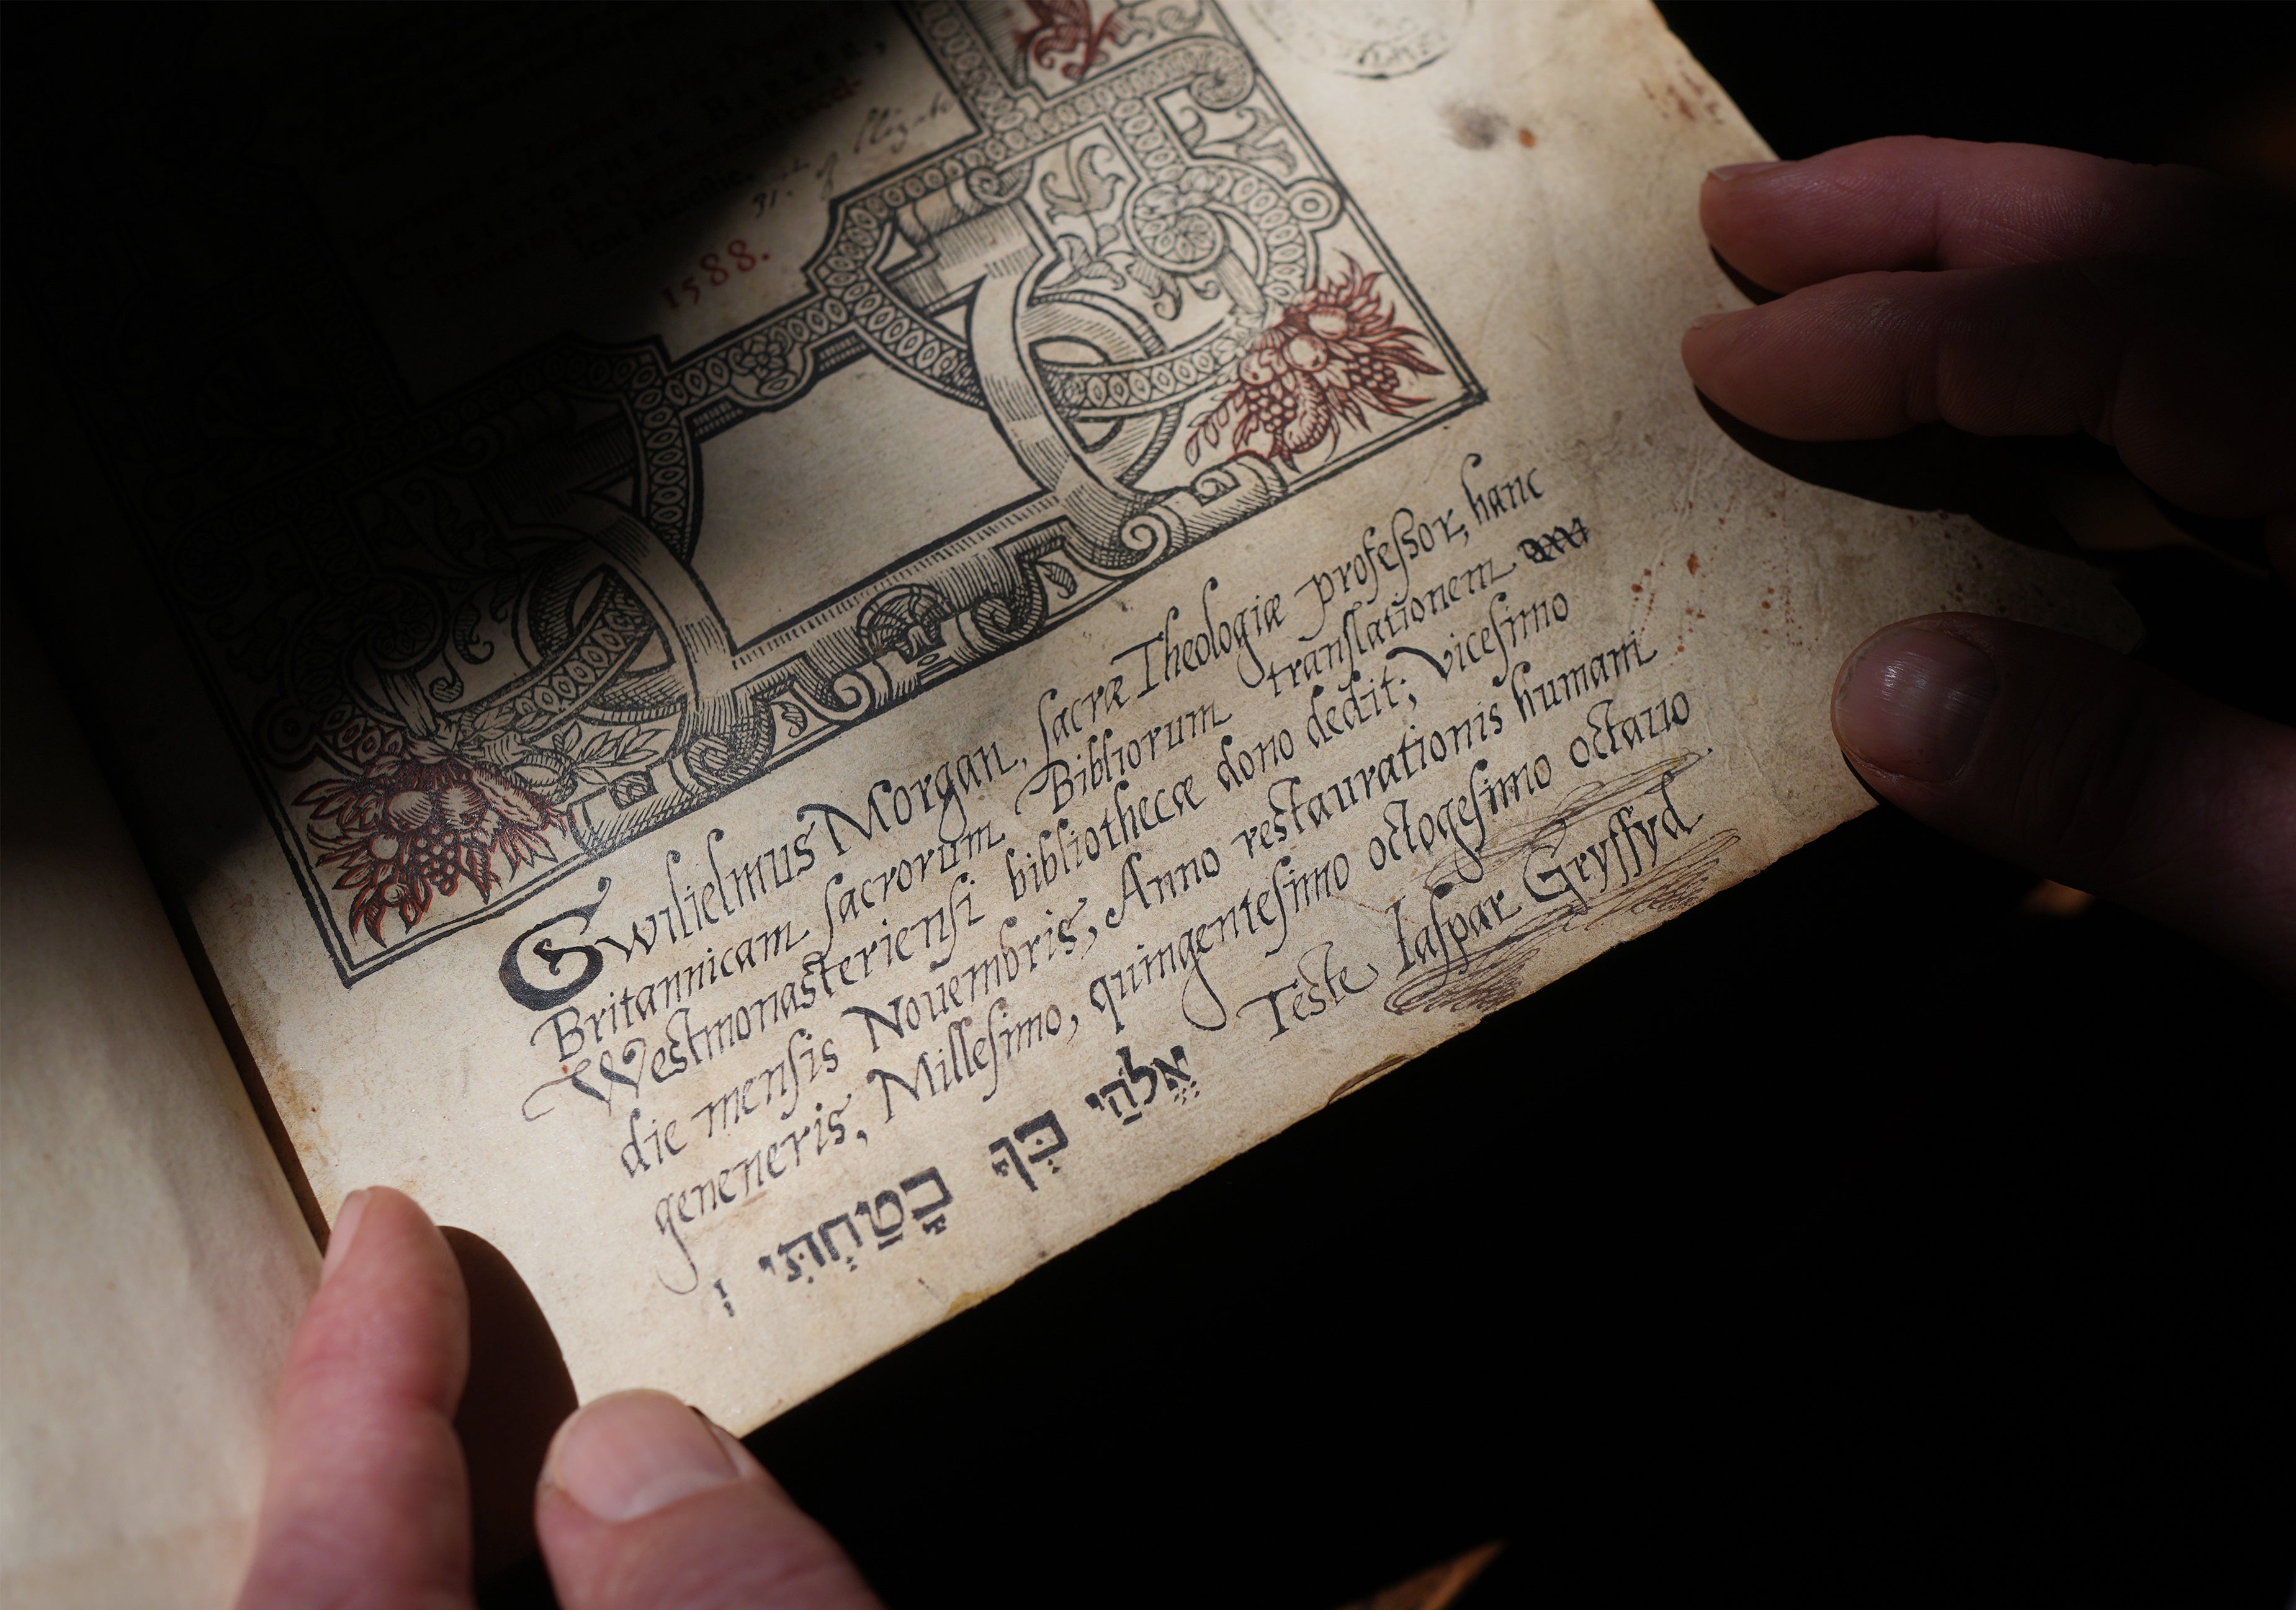 31. of
1588.
Gwilielmus Morgan, ſacræ Theologiæ profeſsor, hanc
Britannicam ſacrorum Bibliorum tranſlationem
Westmonasterienſi bibliothecæ dono dedit; viceſimo
die menſis Nouembris, Anno restaurationis humani
geneneris, Milleſimo, quingenteſimo octogeſimo octauo
Teste Iaſpar Gryffyd
אֱלֹהַי בְּךָ בָּטַחְתִּי